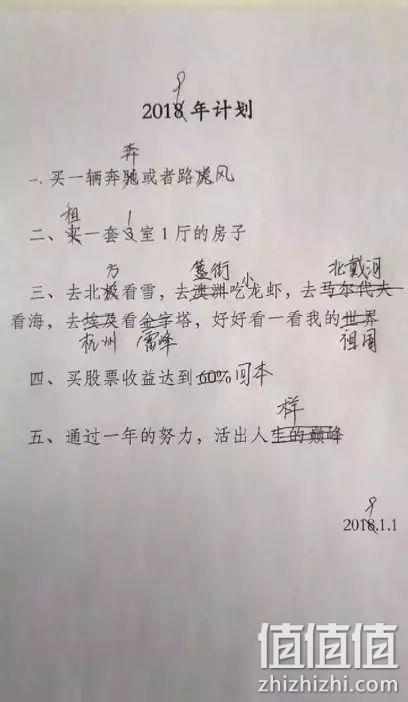 9
2018 年计划
奔
一、买一辆奔驰或者路虎风
租 1
二、买一套 3 室 1 厅的房子
方 簋街 小 北戴河
三、去北极看雪，去澳洲吃龙虾，去马尔代夫
看海，去埃及看金字塔，好好看一看我的世界
杭州 雷峰 祖国
四、买股票收益达到 60% 回本
样
五、通过一年的努力，活出人生的巅峰
9
2018.1.1
值值值
zhizhizhi.com